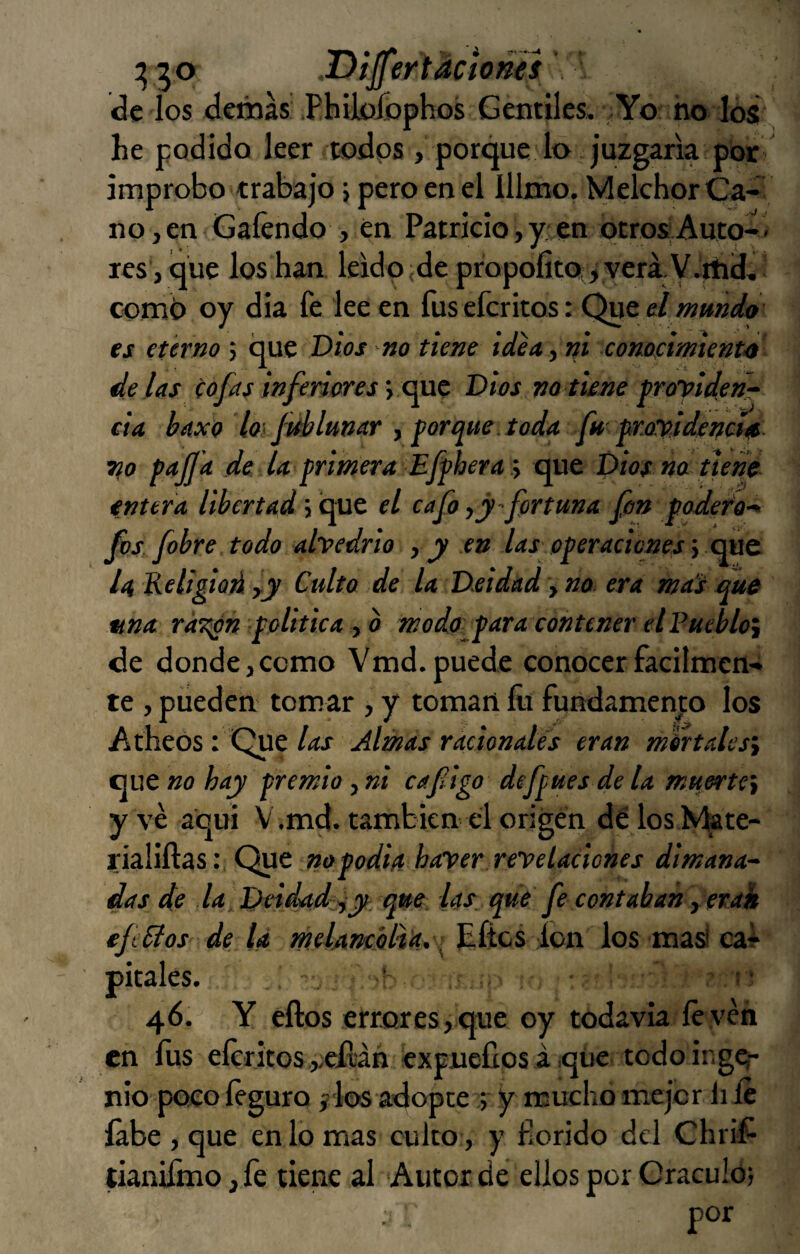 330 Dissertaciones
de los demàs Philosophos Gentiles. Yo no los
he podido leer todos , porque lo juzgarìa por
improbo trabajo ; pero en el Illmo. Melchor Ca-
no, en Gasendo , en Patricio, y en otros Auto-
res , que los han leìdo de proposito , verà V.md.
como oy dia se lee en sus escritos : Que el mundo
es eterno ; que Dios no tiene idèa, ni conocimiento
de las cosas inferiores ; que Dios no tiene providen-
cia baxo lo sublunar , porque toda su providencia
no passa de la primera Esphera ; que Dios no tiene
entera libertad ; que el caso , y fortuna son podero-
sos sobre todo alvedrio , y en las operaciones ; que
la Religion , y Culto de la Deidad , no era mas que
una razon politica , ò modo para contener el Pueblo;
de donde, como Vmd. puede conocer facilmen-
te , pueden tomar , y toman su fundamento los
Atheos : Que las Almas racionales eran mortales;
que no hay premio , ni castigo despues de la muerte;
y vè aqui V.md. tambien el origen de los Mate-
rialistas : Que no podia haver revelaciones dimana-
das de la Deidad , y que las que se contaban , eran
efectos de la melancolìa. Estos son los mas ca-
pitales.
46. Y estos errores, que oy todavia se vèn
en sus escritos, estàn expuestos à que todo inge-
nio poco seguro , los adopte ; y mucho mejor si se
sabe , que en lo mas culto , y florido del Chris-
tianismo , se tiene al Autor de ellos por Oraculo;
por